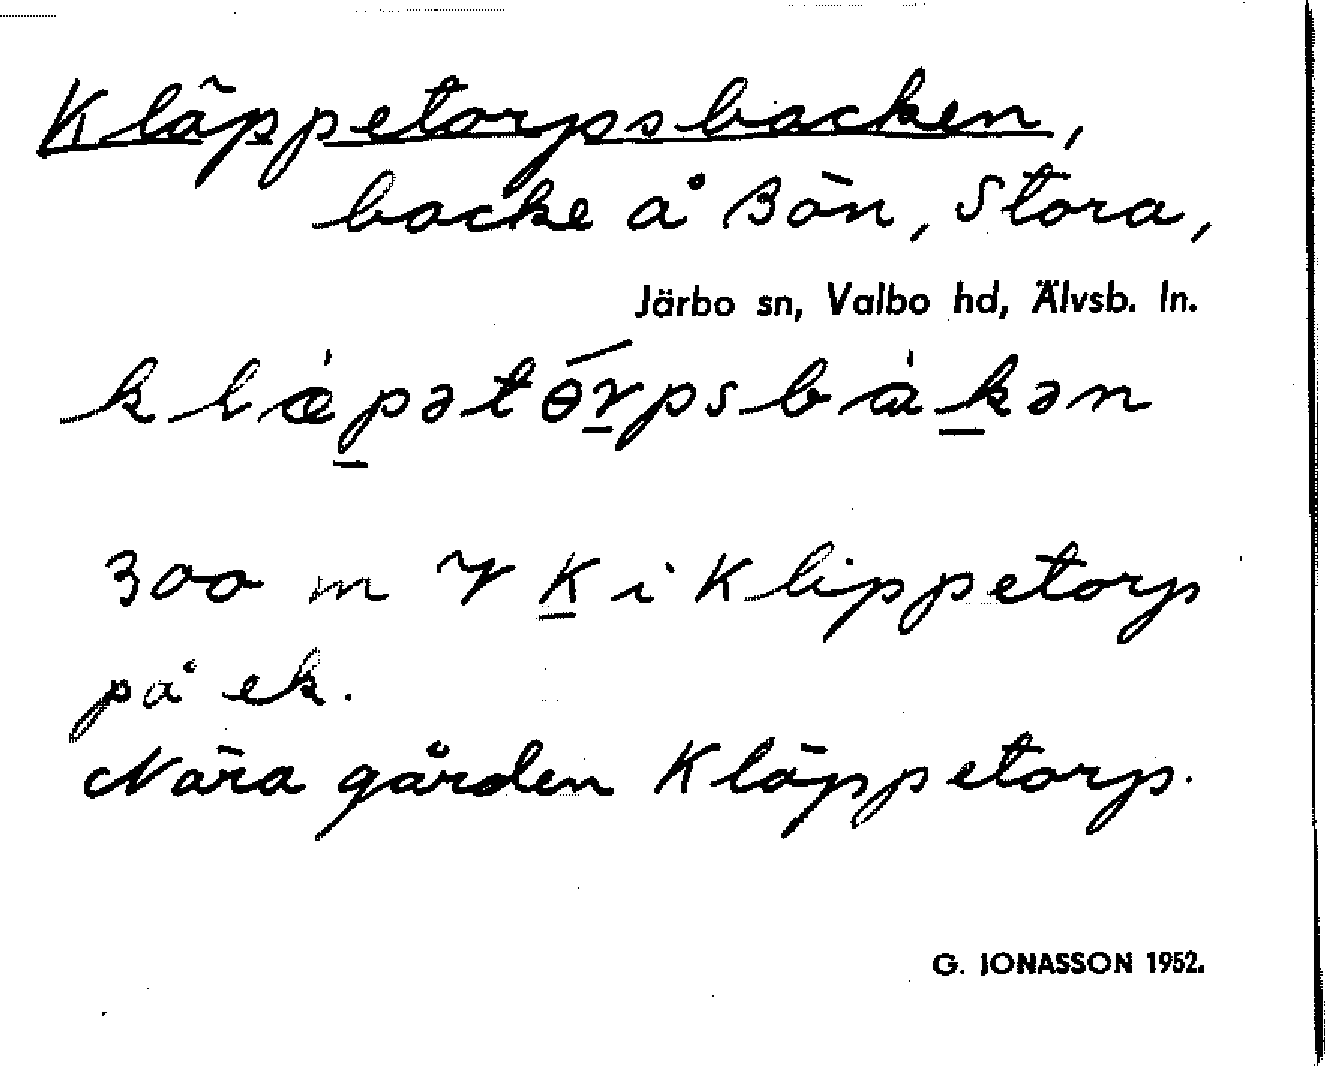 Kläppetorpsbacken,
backe å Bön, Stora,
Järbo sn, Valbo hd, Älvsb. ln.
klæ̀pətɵŕpsbàkən
300 m V K i Klippetorp
på ek.
Nära gården Kläppetorp.
G. JONASSON 1952.